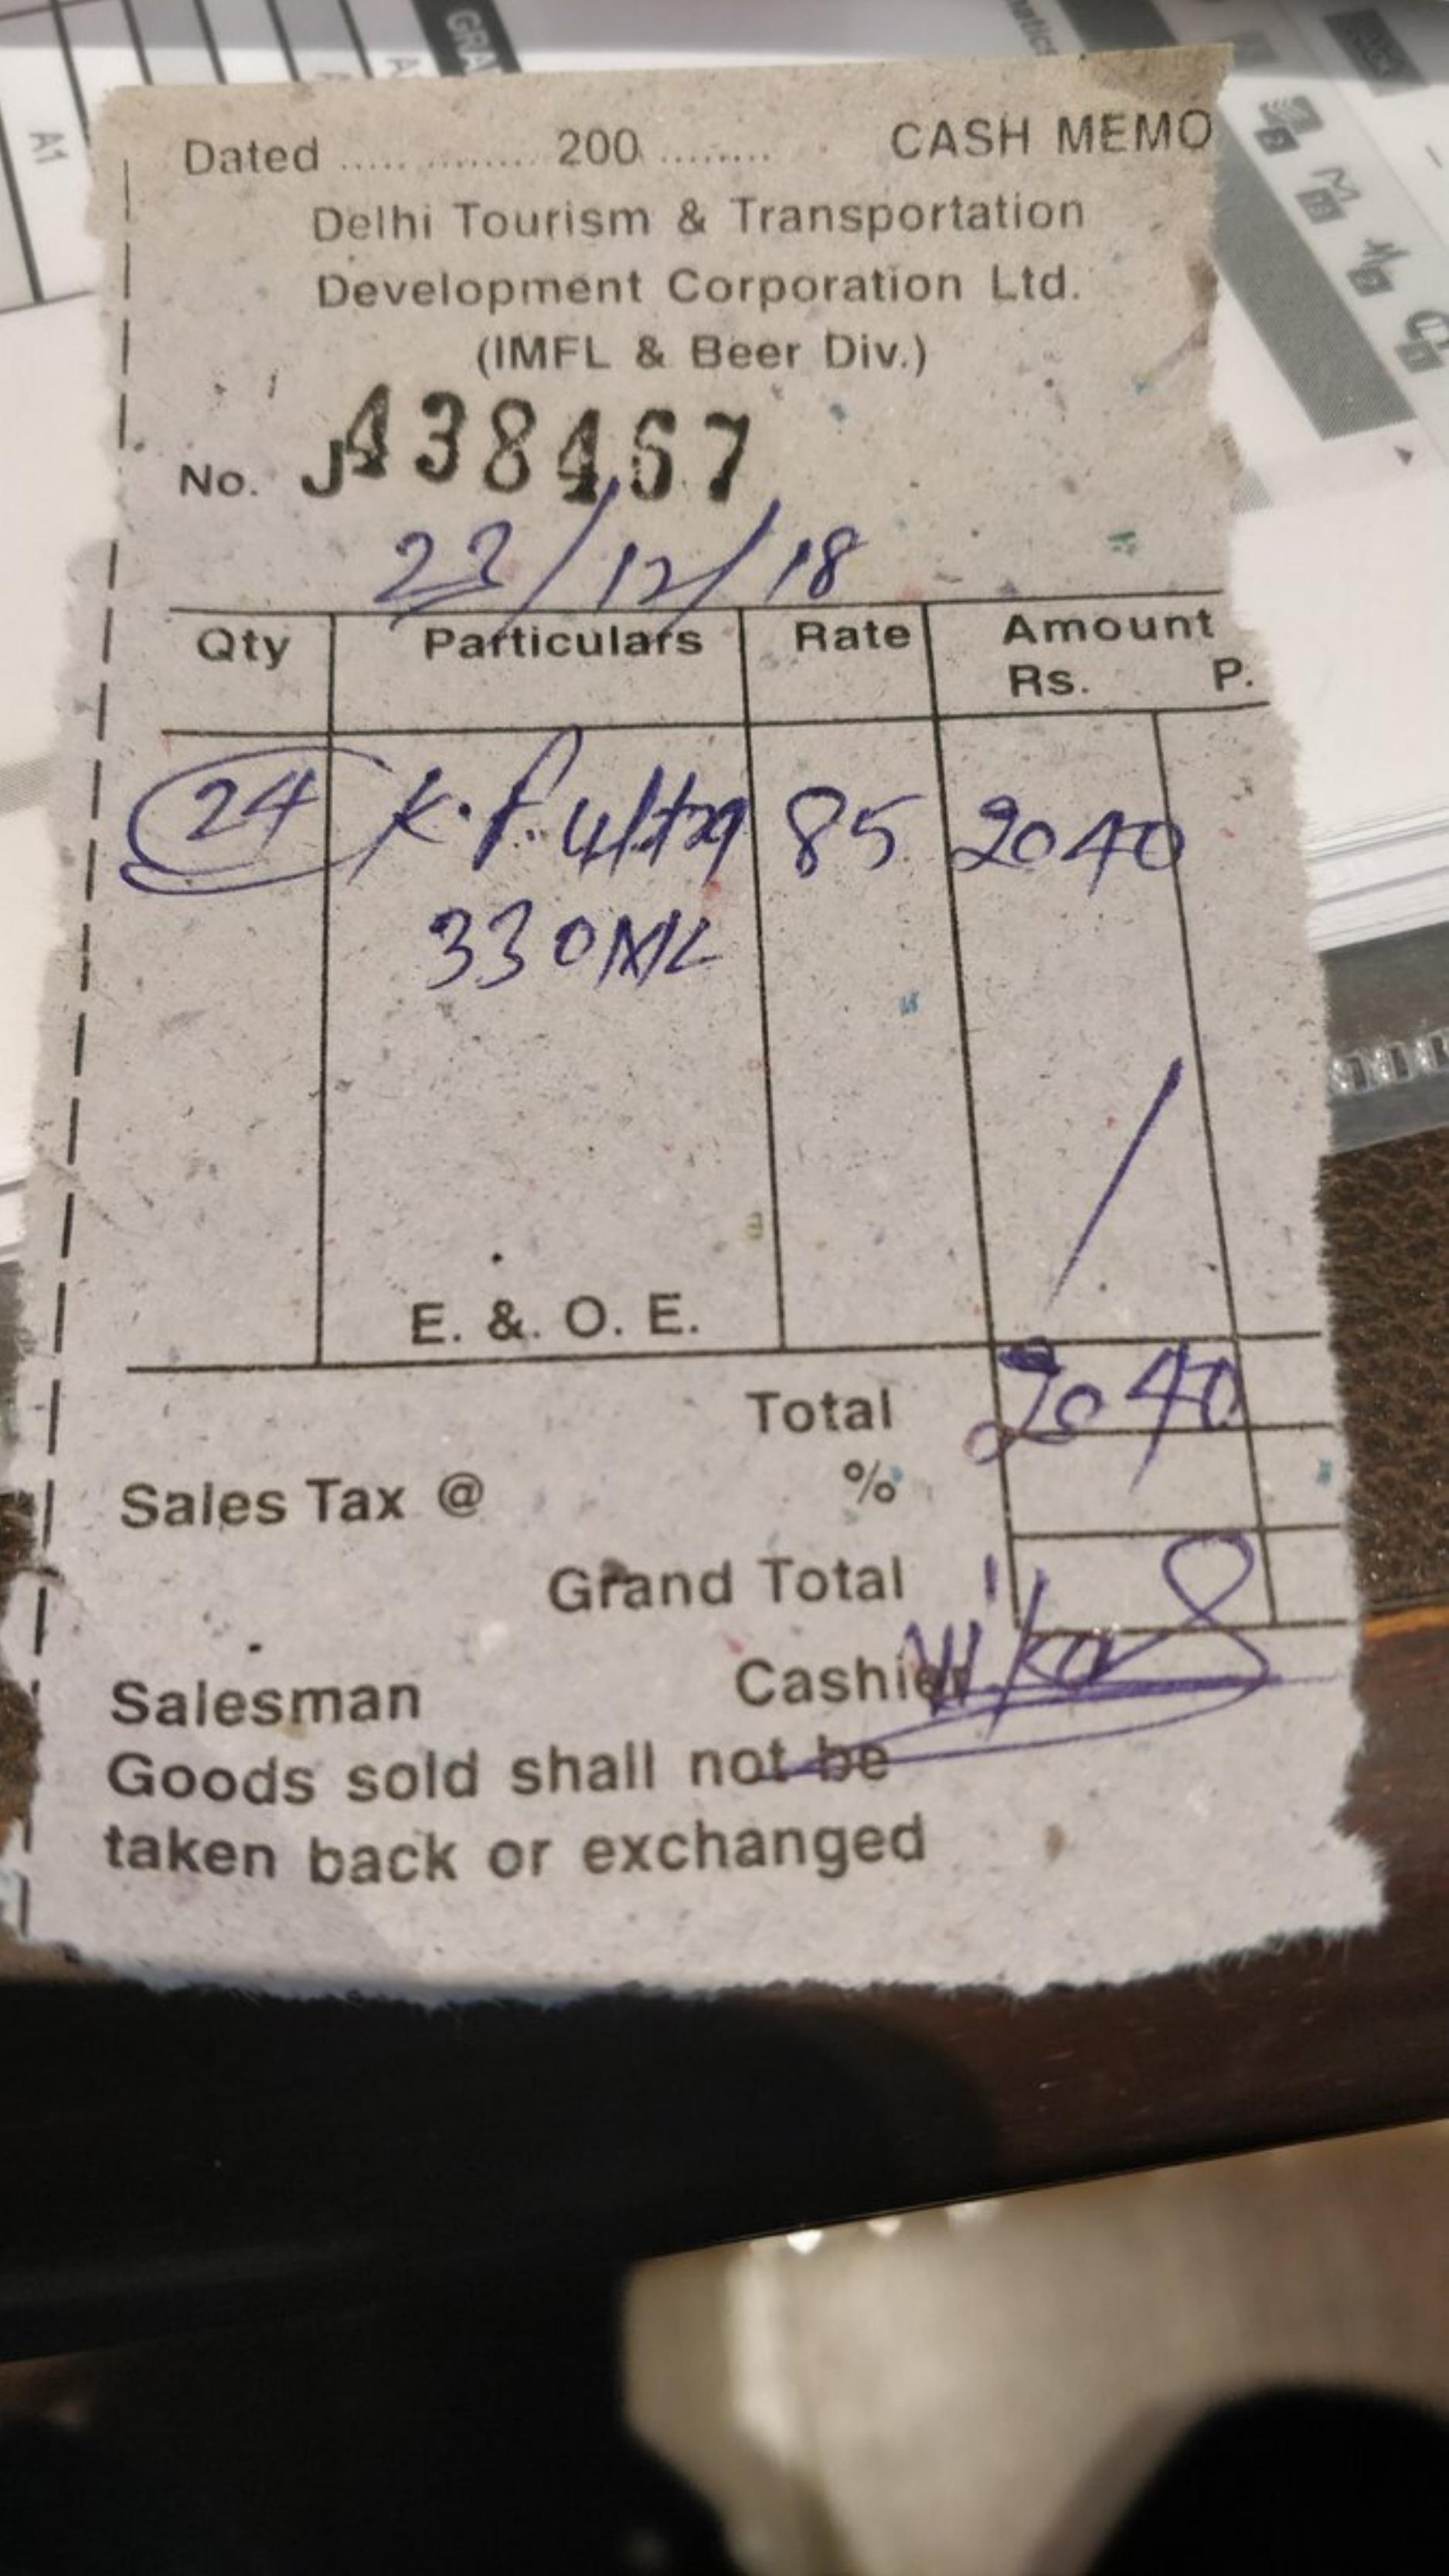 Dated ..... ........ 200 ........ CASH MEMO
Delhi Tourism & Transportation
Development Corporation Ltd.
(IMFL & Beer Div.)
No. J438467
23/12/18
Qty Particulars Rate Amount
Rs. P.
24 K.F. ultra 85 2040
330ML
E. &. O. E.
Total 2040
Sales Tax @ %
Grand Total
Salesman Cashier Vikas
Goods sold shall not be
taken back or exchanged
GRA
A1